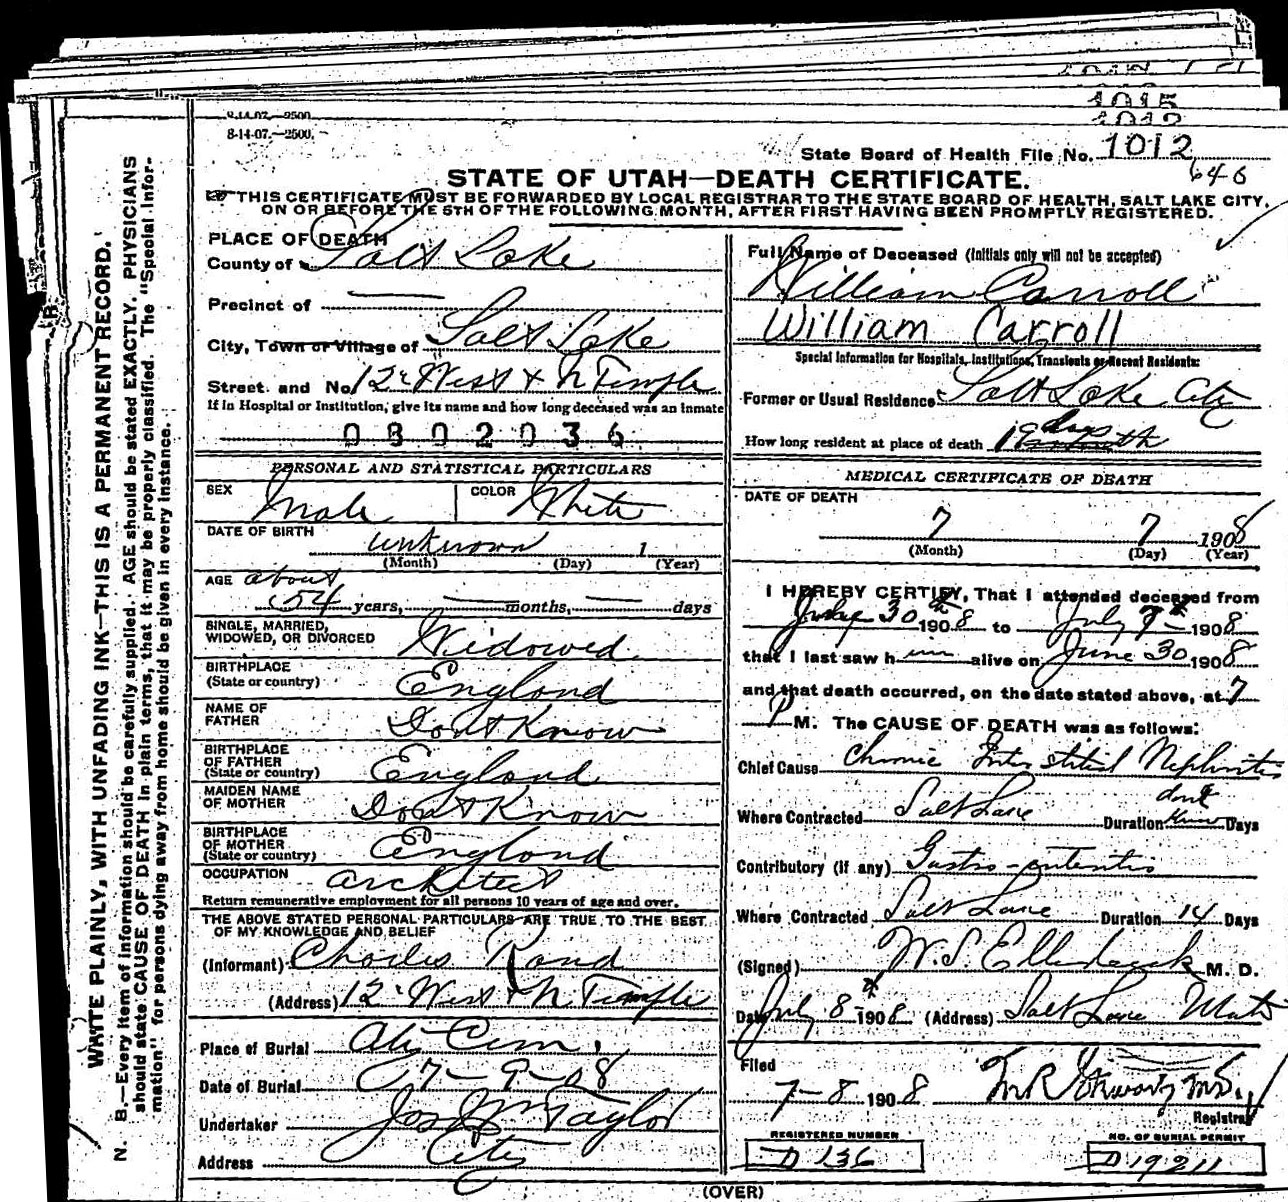 1015
1012
8-14-07.—2500.
8-14-07.—2500.
State Board of Health File No. 1012
646
STATE OF UTAH—DEATH CERTIFICATE.
THIS CERTIFICATE MUST BE FORWARDED BY LOCAL REGISTRAR TO THE STATE BOARD OF HEALTH, SALT LAKE CITY,
ON OR BEFORE THE 5TH OF THE FOLLOWING MONTH, AFTER FIRST HAVING BEEN PROMPTLY REGISTERED.
WRITE PLAINLY, WITH UNFADING INK—THIS IS A PERMANENT RECORD.
N. B.—Every item of information should be carefully supplied. AGE should be stated EXACTLY. PHYSICIANS
should state CAUSE OF DEATH in plain terms, that it may be properly classified. The "Special Infor-
mation" for persons dying away from home should be given in every instance.
PLACE OF DEATH
County of Salt Lake
Precinct of
City, Town or Village of Salt Lake
Street. and No. 12 West & N Temple
If in Hospital or Institution, give its name and how long deceased was an inmate
0802036
PERSONAL AND STATISTICAL PARTICULARS
SEX Male COLOR White
DATE OF BIRTH unknown 1
(Month) (Day) (Year)
AGE about
54 years, months, days
SINGLE, MARRIED,
WIDOWED, OR DIVORCED Widowed
BIRTHPLACE
(State or country) England
NAME OF
FATHER Dont Know
BIRTHPLACE
OF FATHER
(State or country) England
MAIDEN NAME
OF MOTHER Dont Know
BIRTHPLACE
OF MOTHER
(State or country) England
OCCUPATION architect
Return remunerative employment for all persons 10 years of age and over.
THE ABOVE STATED PERSONAL PARTICULARS ARE TRUE TO THE BEST
OF MY KNOWLEDGE AND BELIEF
(Informant) Charles Rand
(Address) 12 West & N Temple
Place of Burial Cem.
Date of Burial 7-9-08
Undertaker Jos Wm Taylor
Address City
Full Name of Deceased (Initials only will not be accepted)
William Carroll
William Carroll
Special Information for Hospitals, Institutions, Transients or Recent Residents:
Former or Usual Residence Salt Lake City
How long resident at place of death 19 days
MEDICAL CERTIFICATE OF DEATH
DATE OF DEATH
7 7 1908
(Month) (Day) (Year)
I HEREBY CERTIFY, That I attended deceased from
30th 1908 to July 7th 1908
that I last saw him alive on June 30 1908
and that death occurred, on the date stated above, at 7
P M. The CAUSE OF DEATH was as follows:
Chief Cause Chronic Interstitial Nephritis
Where Contracted Salt Lake Duration dont know Days
Contributory (if any) Gastro-enteritis
Where Contracted Salt Lake Duration 14 Days
(Signed) W. S. M. D.
Date July 8th 1908 (Address) Salt Lake Utah
Filed
7-8 1908 M.D.
Registrar
REGISTERED NUMBER
D 136
NO. OF BURIAL PERMIT
D 19211
(OVER)